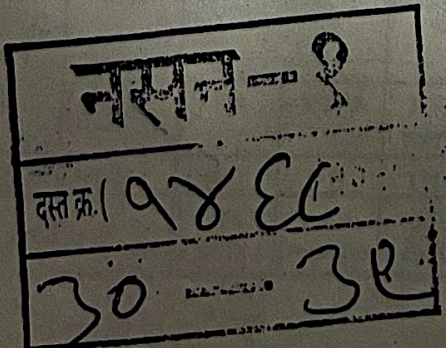 नसन-१
दस्त क्र.( १४६८
३० ---- ३९